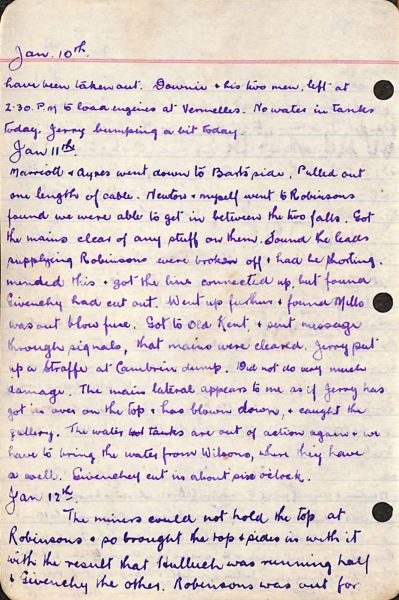 Jan. 10th.
have been taken out. Downie & his two men, left at
2.30. P.M to load engines at Vermelles. No water in tanks
today. Jerry bumping a bit today.
Jan 11th.
Marriott & Ayres went down to Barts side, Pulled out
one length of cable. Newton & myself went to Robinsons
found we were able to get in between the two falls. Got
the mains clear of any stuff on them. Found the leads
supplying Robinsons were broken off & had be shorting.
mended this & got the line connected up, but found
Givenchy had cut out. Went up further & found Mills
was out blow fuse. Got to Old Kent, & sent message
through signals, that mains were cleared. Jerry put
up a Straffe at Cambrin dump. Did not do very much
damage. The main lateral appears to me as if Jerry has
got in over on the top & has blown down, & caught the
gallery. The water tanks are out of action again & we
have to bring the water from Wilsons, where they have
a well. Givenchey cut in about six o'clock.
Jan 12th.
The miners could not hold the top at
Robinsons & so brought the top & sides in with it
with the result that Hulluch was running half
& Givenchy the other. Robinsons was out for